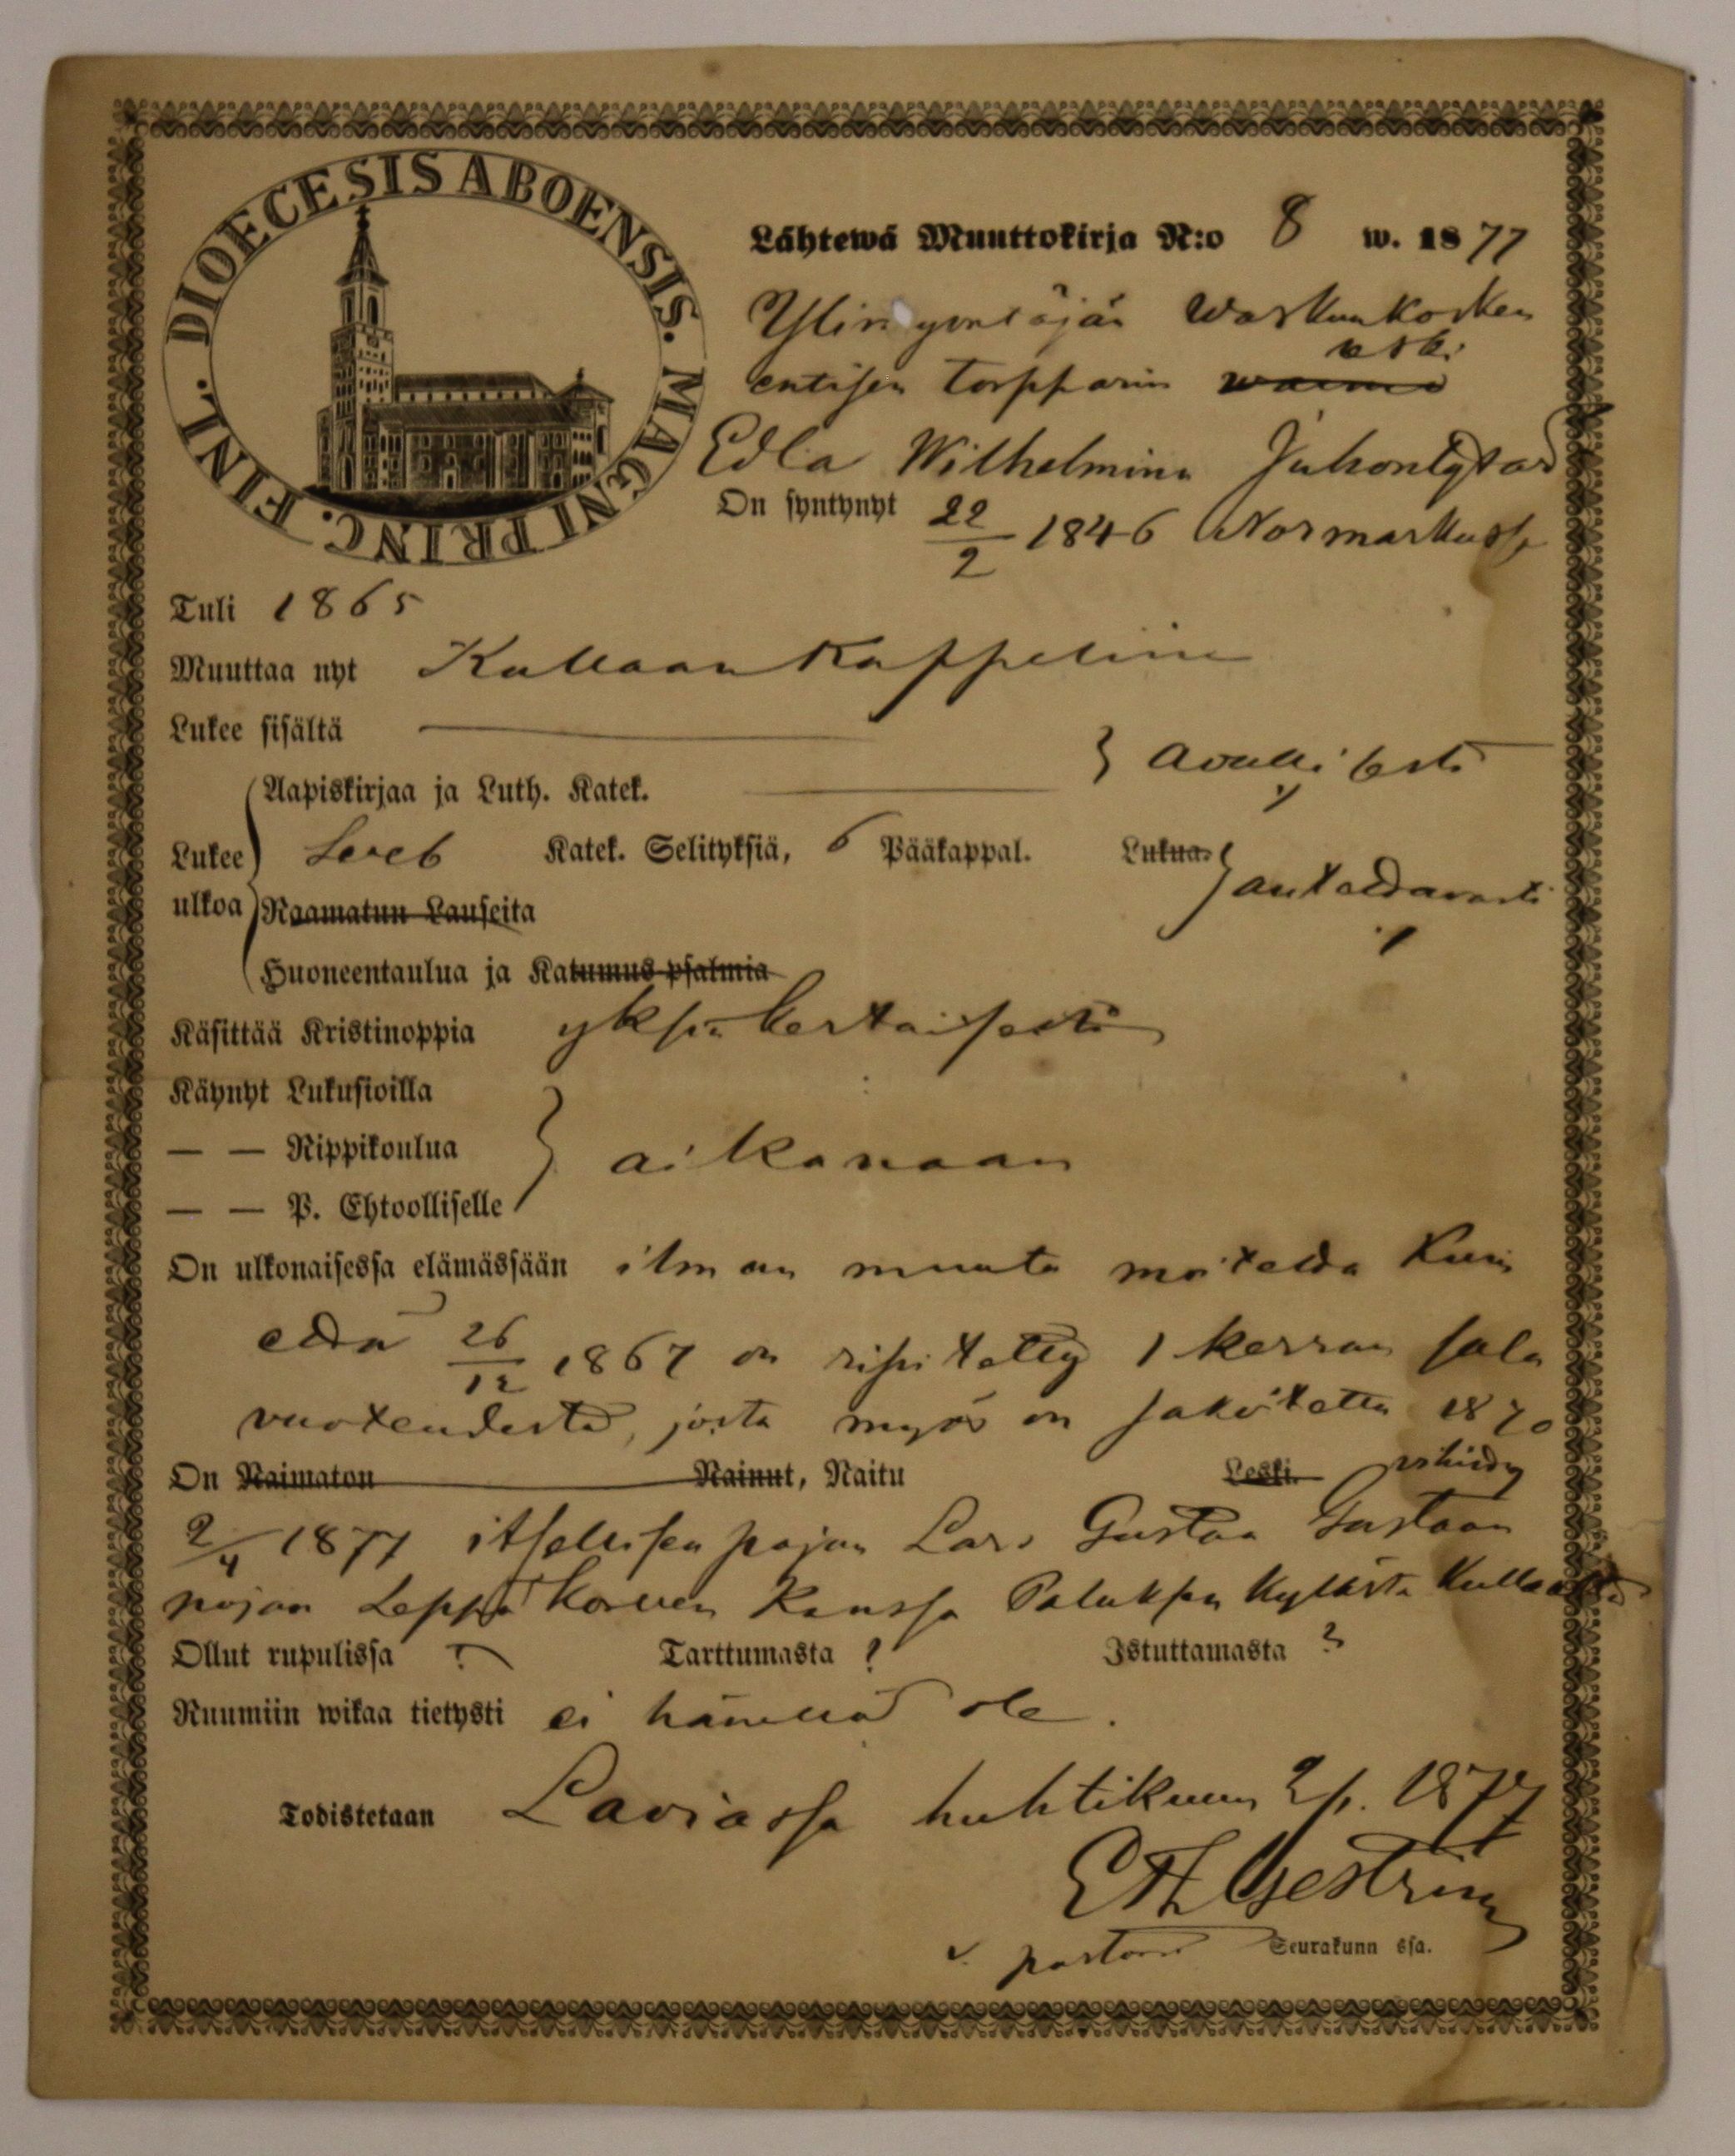 DIOECESIS ABOENSIS. MAGNI PRINC. FINL.
Lähtewä Muuttokirja N:o 8 w. 1877
entisen torpparin leski waimo
Edla Wilhelmina Juhontytär
On syntynyt 22/2 1846 Normarkussa
Tuli 1865
Muuttaa nyt Kullaan Kappeliin
Lukee sisältä
} Awullisesti
Aapiskirjaa ja Luth. Katek.
Lukee Sveb Katek. Selityksiä, 6 Pääkappal. Lukua.
ulkoa Raamatun Lauseita } auttavasti
Huoneentaulua ja Katumus psalmia
Käsittää Kristinoppia yksinkertaisesti
Käynyt Lukusioilla
— — Rippikoulua } aikanaan
— — P. Ehtoolliselle
On ulkonaisessa elämässään ilman muuta moitetta kuin
että 26/12 1867 on ripitetty 1 kerran sala
vuoteudesta, josta myös on sakotettu 1870
On Naimaton Nainut, Naitu Leski. vihitty
2/4 1877 itsellisen pojan Lars Gustaa Gustaan
pojan Leppäkorven kanssa Paluksen kylästä Kullaalta
Ollut rupulissa ? Tarttumasta ? Istuttamasta ?
Ruumiin wikaa tietysti ei hänellä ole.
Todistetaan Laviassa huhtikuun 2 p. 1877
Gestrin
v. pastori Seurakunn ssa.